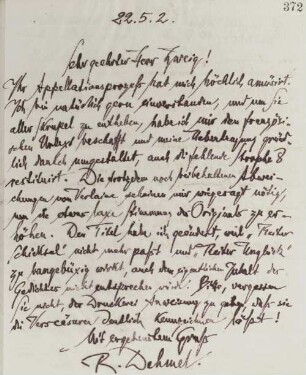 372
22.5.2.
Sehr geehrter Herr Zweig!
Ihr Appellationsprozeß hat mich höchlich amüsirt.
Ich bin natürlich gern einverstanden, und um Sie
aller Skrupel zu entheben, habe ich mir den französi-
schen Urtext beschafft und meine Uebertragung gründ-
lich danach umgestaltet, auch die fehlende Strophe 8
restituirt. Die trotzdem noch vorbehaltenen Abwei-
chungen von Verlaine scheinen mir nötig,
um die etwas laxe Stimmung des Originals zu er-
höhen. Den Titel habe ich geändert, weil "
Schicksal" nicht mehr paßt und " Unglück"
zu wirkt, auch den eigentlichen Inhalt des
Gedichtes nicht entsprechen wird. Bitte, vergessen
Sie nicht, der Druckerei Anweisung zu geben, daß sie
die Verscäsuren deutlich kennzeichnen läßt!
Mit ergebenstem Gruß
R. Dehmel.